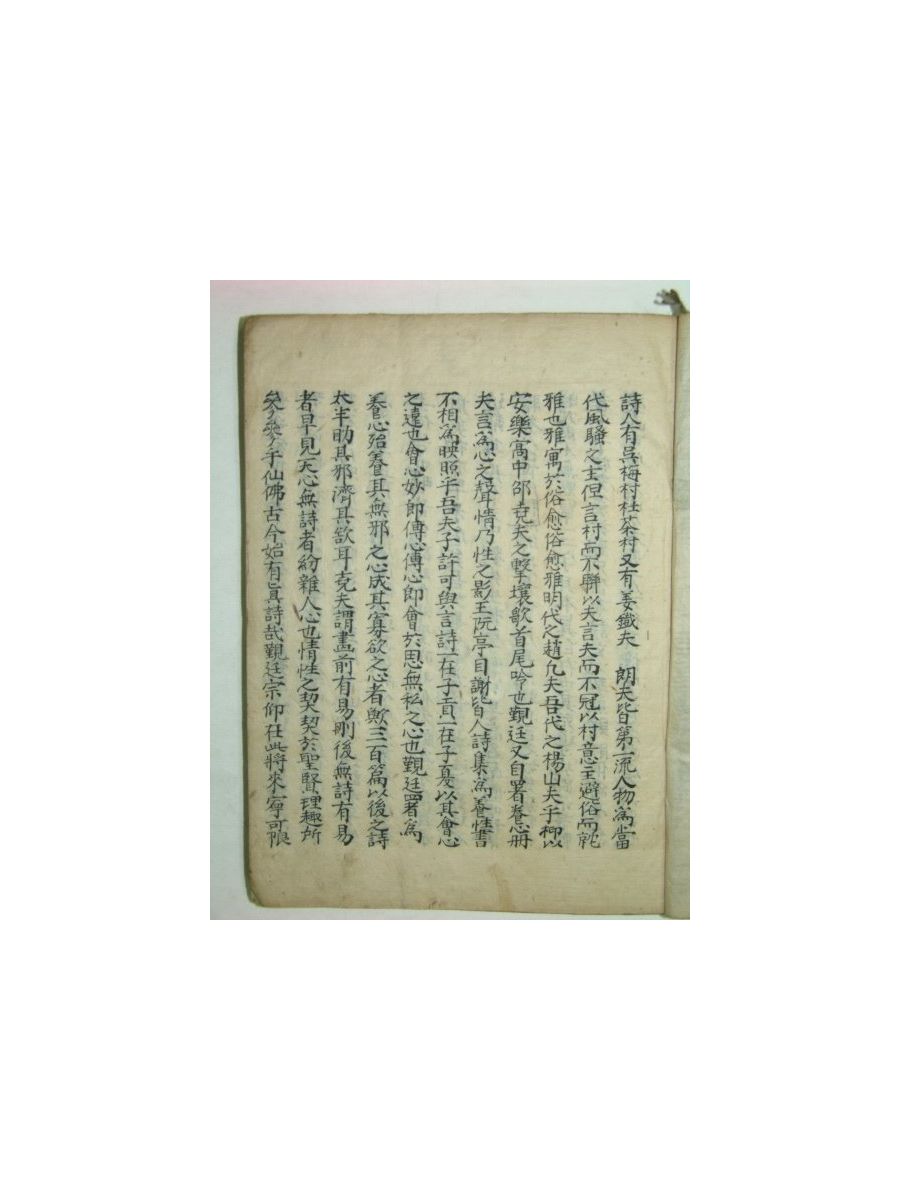 詩人有吳梅村杜茶村又有姜鐵夫 朗夫皆第一流人物爲當
代風騷之主但言村而不聯以夫言夫而不冠以村意主避俗而就
雅也雅寓於俗愈俗愈雅明代之趙凡夫吾代之楊山夫乎抑以
安樂窩中邵堯夫之擊壤歌首尾吟也覲廷又自署養心冊
夫言爲心之聲情乃性之影王阮亭目謝皆人詩集爲養性書
不相爲映照乎吾夫子許可與言詩一在子貢一在子夏以其會心
之遠也會心妙即傳心傳心即會於思無私之心也覲廷署爲
養心殆養其無邪之心成其寡欲之心者歟三百篇以後之詩
太半助其邪濟其欲耳堯夫謂畫前有易刪後無詩有易
者早見天心無詩者紛雜人心也情性之契契於聖賢理趣所
參參乎仙佛古今始有眞詩哉覲廷宗仰在此將來寧可限